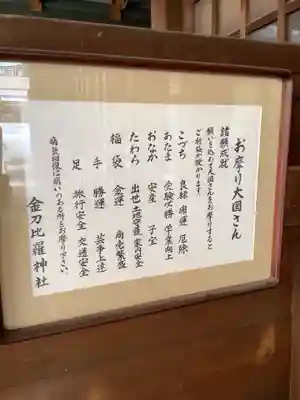 お摩り大国さん
諸願成就
願いを込めて大国さんをお摩りすると
ご利益が授かります
こづち 良縁 開運 厄除
あたま 受験必勝 学業向上
おなか 安産 子宝
たわら 出世 土地守護 家内安全
福袋 金運 商売繁盛
手 勝運 芸事上達
足 旅行安全 交通安全
病気回復は病いのある所をお摩り下さい。
金刀比羅神社